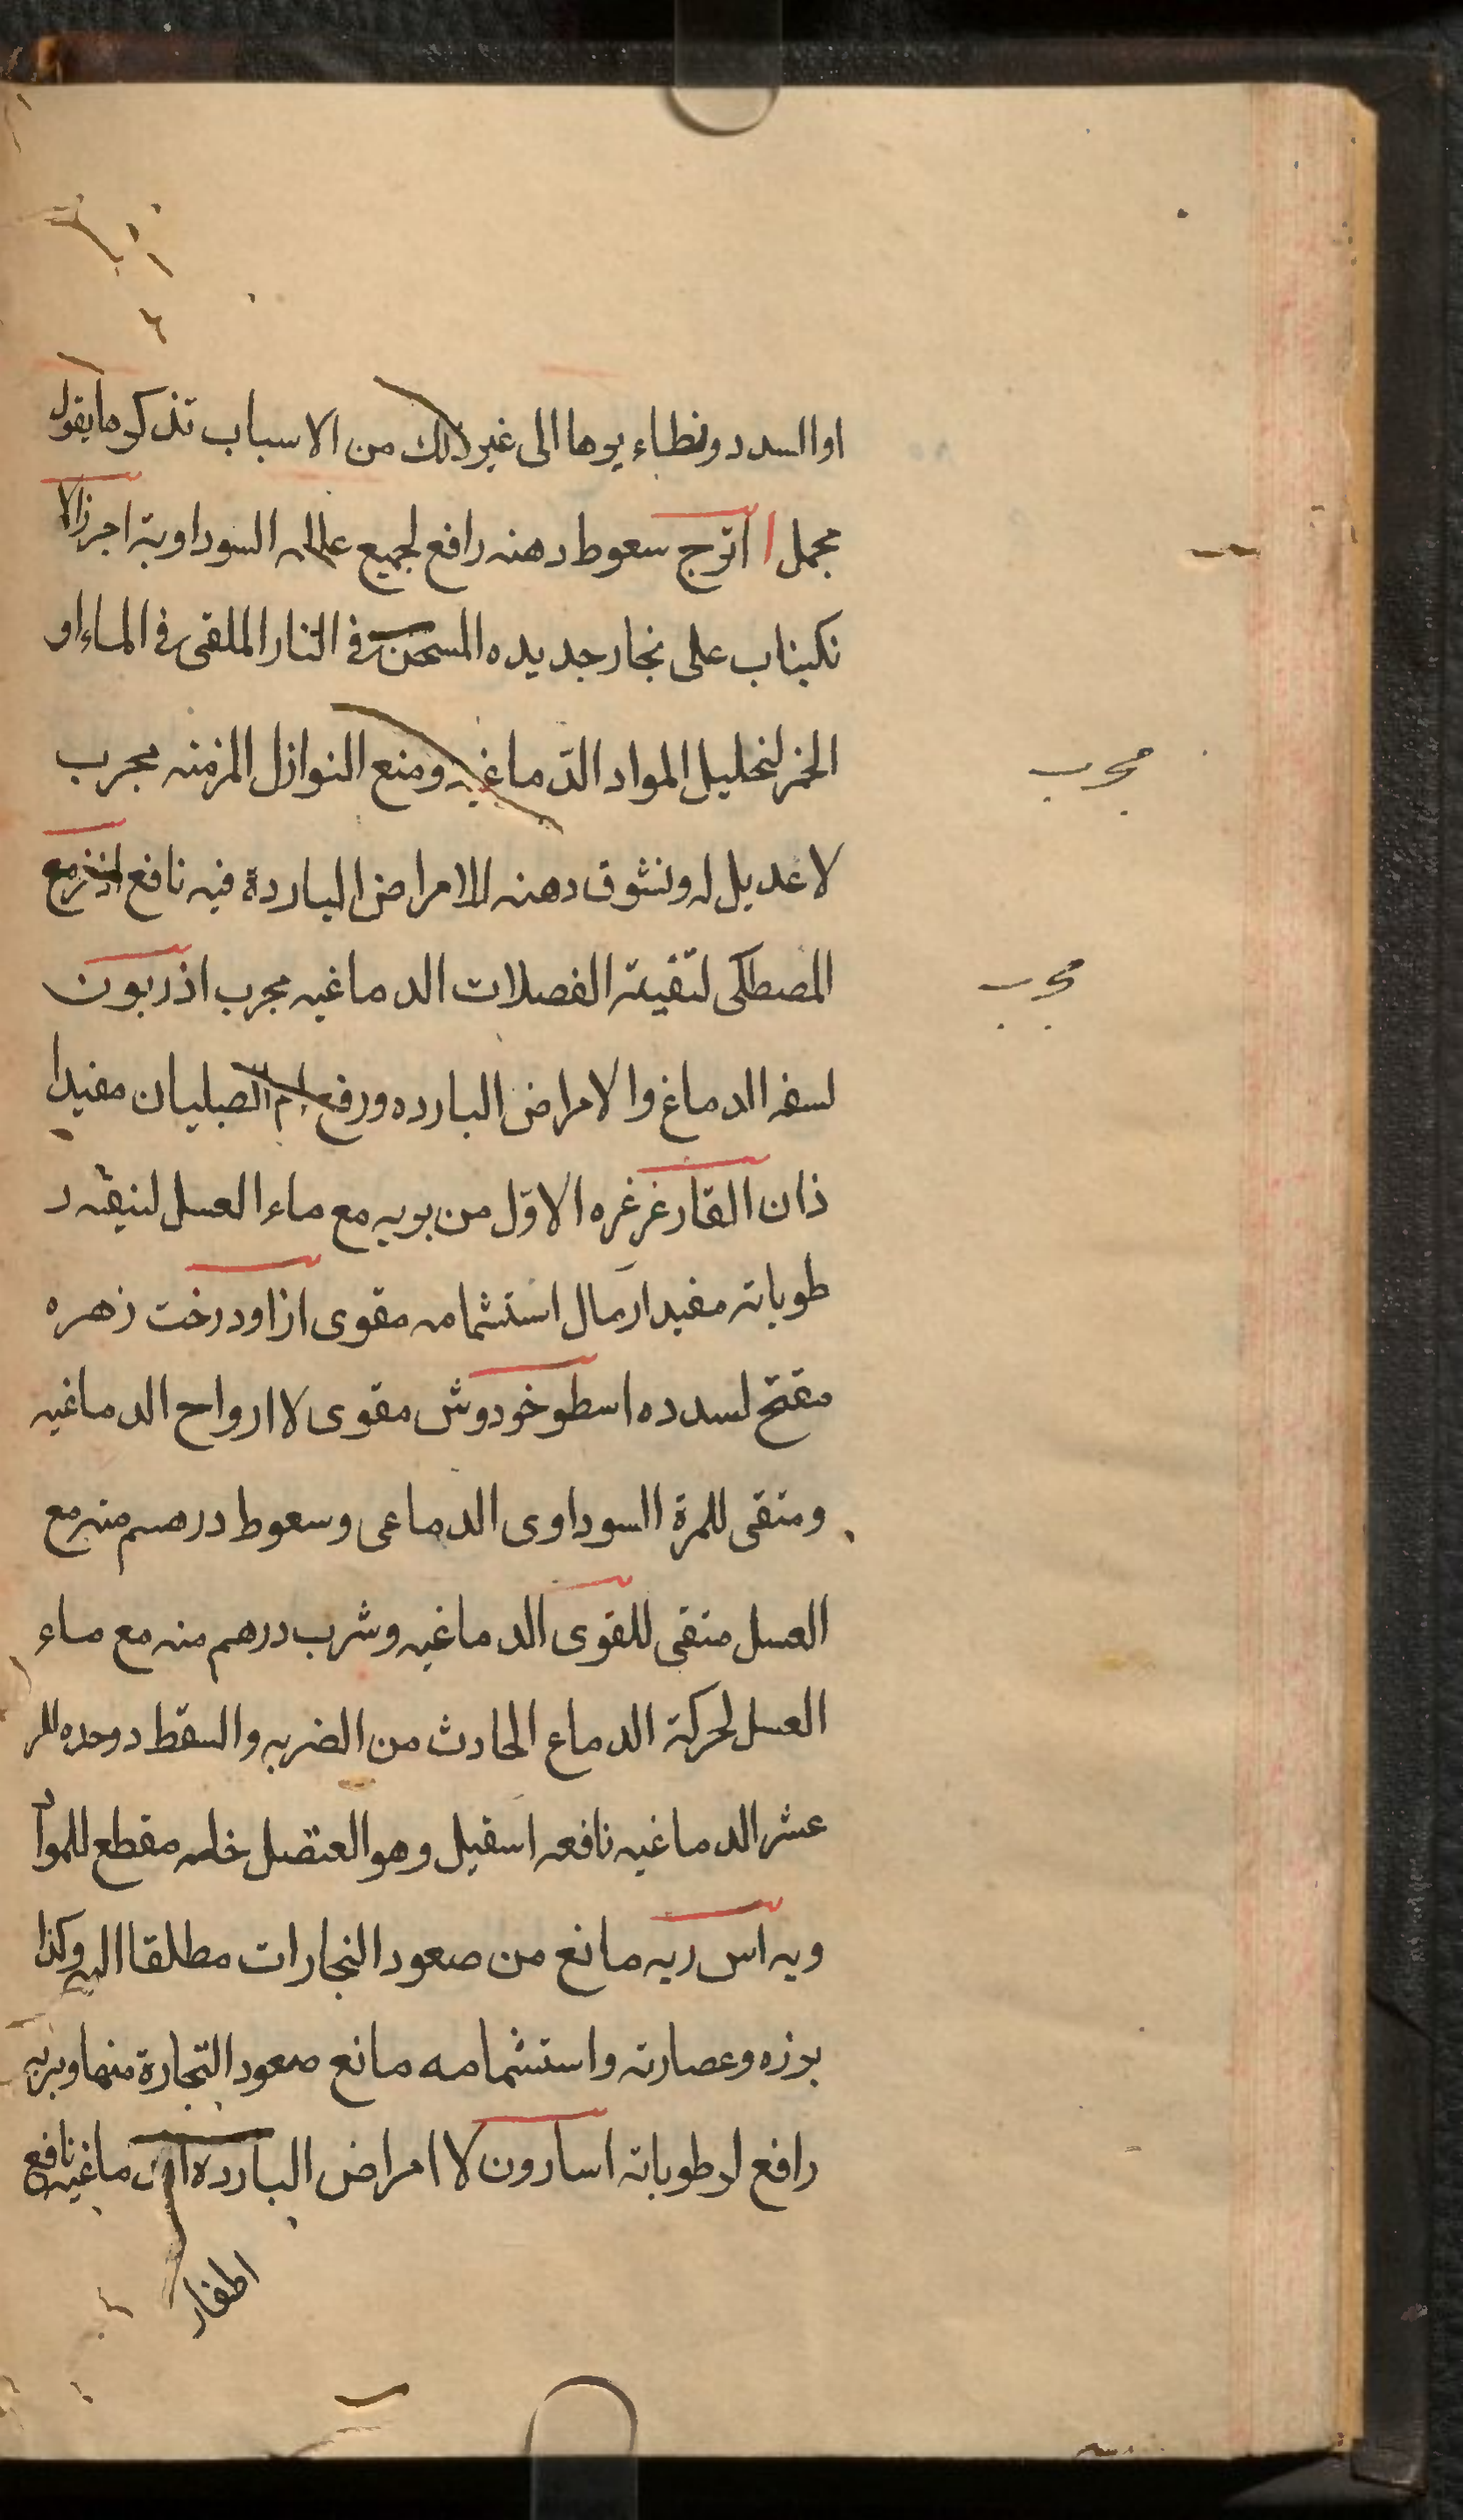 او السدد ونظاء يوها الى غير ذلك من الاسباب تذكر ما يقول
مجمل اترج سعوط دهنه رافع لجميع علله السوداوية اجر زالا
نكبناب على نجار جديده المسخن في النار الملقى في الماء او
الخمر لتحليل المواد الدماغيه ومنع النوازل المزمنه مجرب
مجرب
لا عديل له ونشوق دهنه للامراض الباردة فيه نافع اذخر مع
المصطكى لتنقية الفصلات الدماغيه مجرب اذريون
مجرب
لسفه الدماغ والامراض البارده ورفع ام الصبيان مفيد ا
ذان الفار غرغره الاول من بويه مع ماء العسل لتنيقه ر
طوباته مفيد ارمال استشمامه مقوى ازاودرخت زهره
مفتح لسدده اسطوخودوش مقوى لا ارواح الدماغيه
ومنقى للمرة السوداوى الدماعى وسعوط درهم منه مع
العسل منقى للقوى الدماغيه وشرب درهم منه مع ماء
العسل لحركة الدماع الحادث من الضربه والسقط دوحده للر
عشر الدماغيه نافعه اسقيل وهو العنصل خله مقطع للموا
ويه اس ربه مانع من صعود النجارات مطلقا اليه وكذا
بوزه وعصارته واستشمامه مانع صعود التجارة منها وبزبه
رافع لرطوباته اسارون لا امراض البارده الدماغيه نافع
اظفار